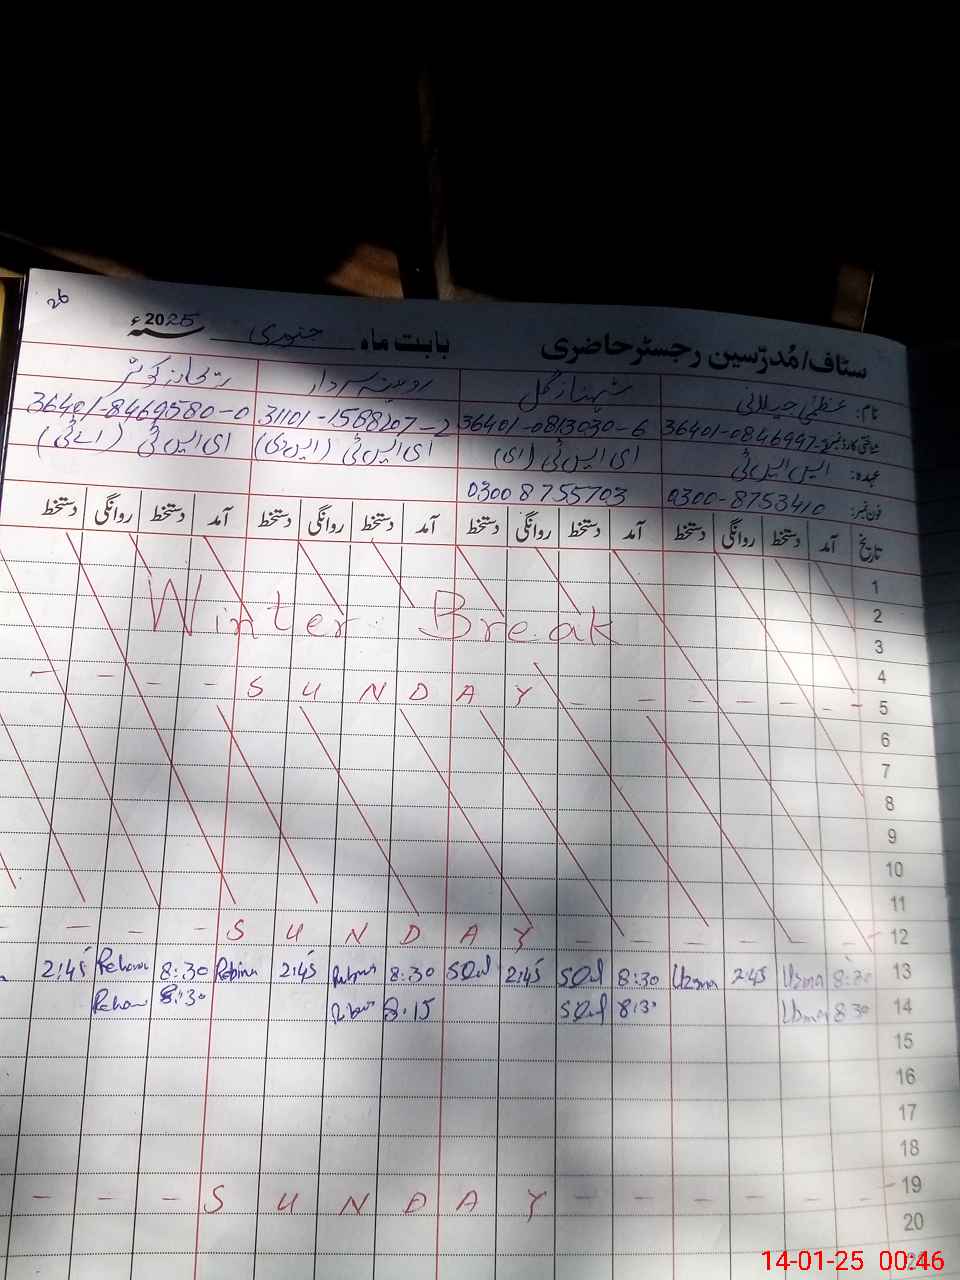 26
سٹاف/مُدرّسین رجسٹر حاضری بابت ماہ جنوری 2025ء
نام: عظمیٰ جیلانی شہناز گل روبینہ سردار ریحانہ کوثر
شناختی کارڈ نمبر: 36401-0846997- 36401-0813030-6 31101-1588207-2 36401-8469580-0
عہدہ: ایس ایس ٹی ای ایس ٹی (ای) ای ایس ٹی (ایس ڈی) ای ایس ٹی (اے ٹی)
فون نمبر: 0300-8753410 0300 8755703
تاریخ آمد دستخط روانگی دستخط آمد دستخط روانگی دستخط آمد دستخط روانگی دستخط آمد دستخط روانگی دستخط
1
2
Winter Break
3
4
SUNDAY 5
6
7
8
9
10
11
SUNDAY 12
2:45 Rehana 8:30 Robina 2:45 8:30 SGul 2:45 SGul 8:30 Uzma 2:45 Uzma 8:30 13
Rehan 8:30 8.15 SGul 8:30 Uzma 8:30 14
15
16
17
18
SUNDAY 19
20
14-01-25 00:46